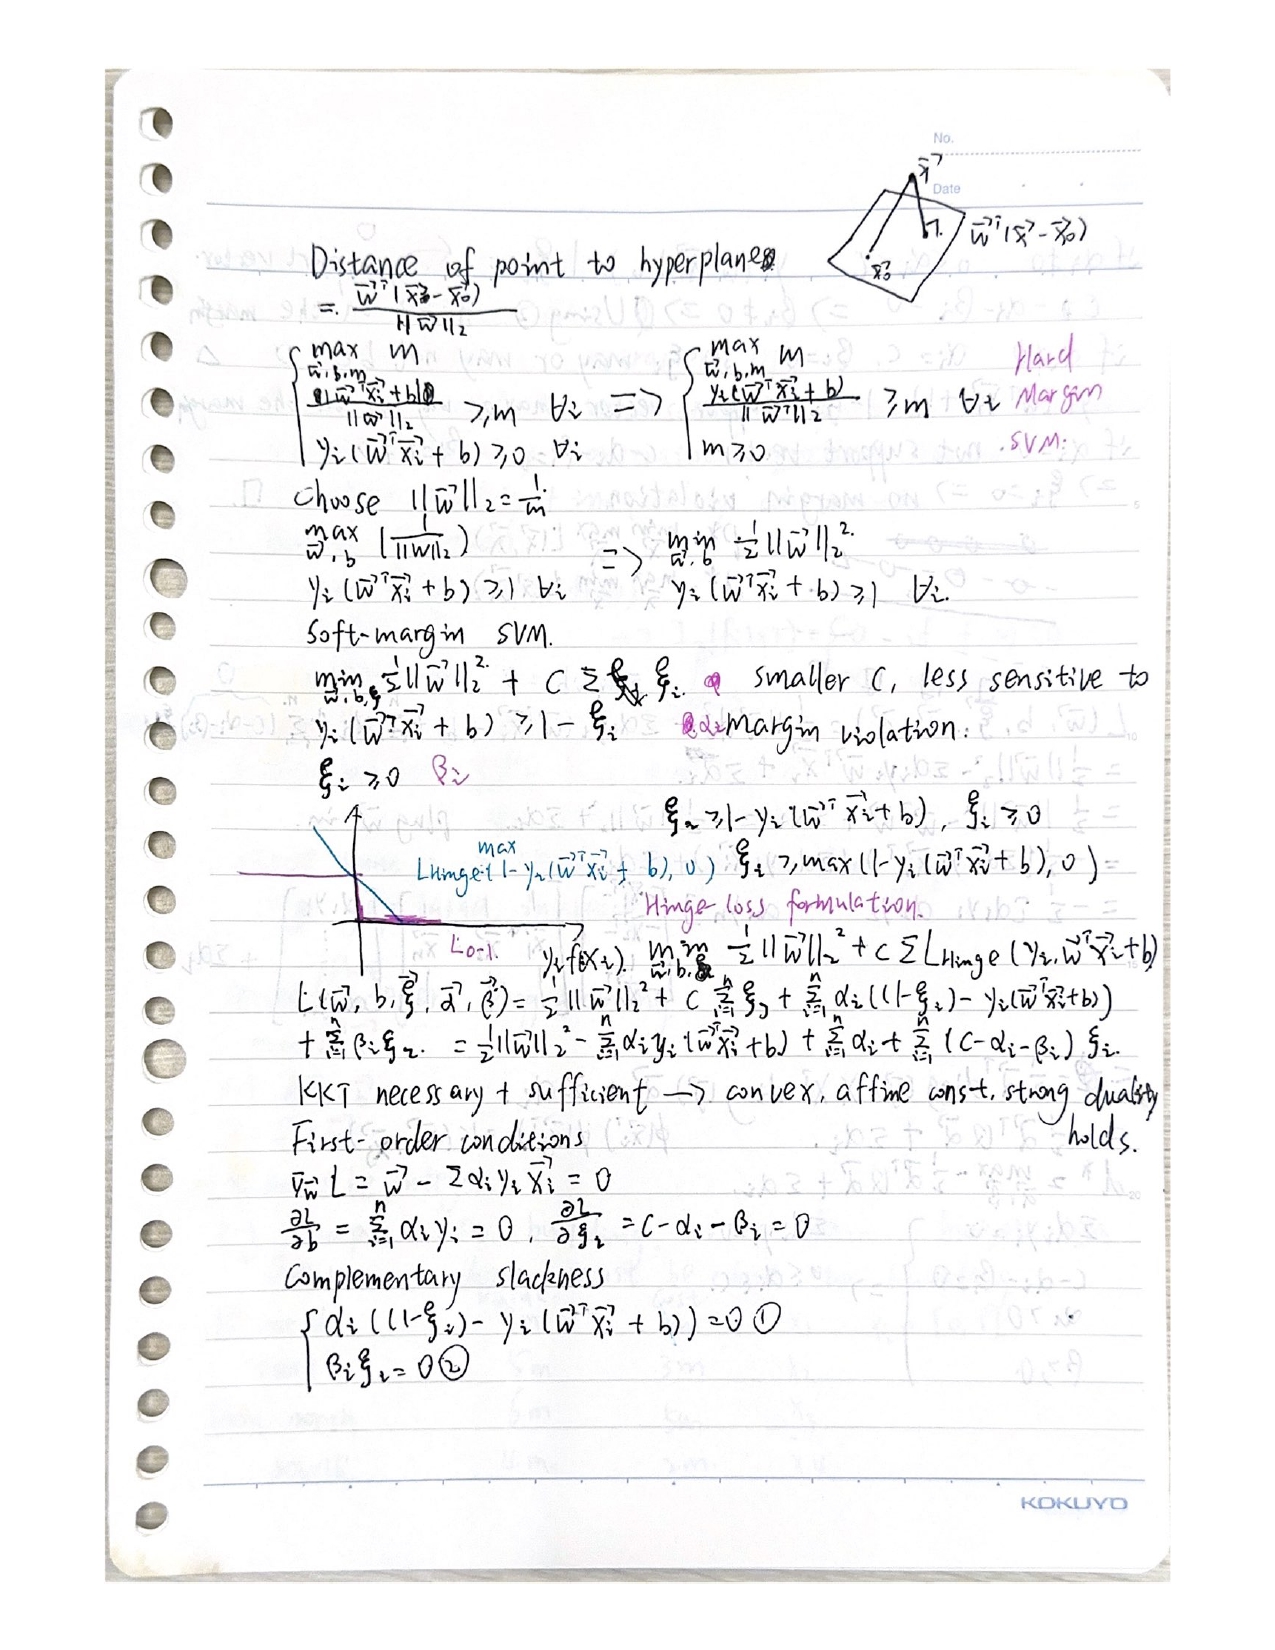 No.
Date
x⃗
x⃗₀
w⃗ᵀ(x⃗ - x⃗₀)
Distance of point to hyperplane
= w⃗ᵀ(x⃗ - x⃗₀) / ||w⃗||₂
{ max_{w⃗,b,m} m => { max_{w⃗,b,m} m Hard
|w⃗ᵀx⃗ᵢ + b| / ||w⃗||₂ ≥ m ∀i yᵢ(w⃗ᵀx⃗ᵢ + b) / ||w⃗||₂ ≥ m ∀i Margin
yᵢ(w⃗ᵀx⃗ᵢ + b) ≥ 0 ∀i m ≥ 0 SVM.
Choose ||w⃗||₂ = 1/m
max_{w⃗,b} (1/||w||₂) => min_{w⃗,b} ½||w⃗||₂²
yᵢ(w⃗ᵀx⃗ᵢ + b) ≥ 1 ∀i yᵢ(w⃗ᵀx⃗ᵢ + b) ≥ 1 ∀i.
Soft-margin SVM.
min_{w⃗,b,ξ} ½||w⃗||₂² + C Σ ξᵢ. smaller C, less sensitive to
yᵢ(w⃗ᵀx⃗ᵢ + b) ≥ 1 - ξᵢ αᵢ margin violation.
ξᵢ ≥ 0 βᵢ
ξᵢ ≥ 1 - yᵢ(w⃗ᵀx⃗ᵢ + b), ξᵢ ≥ 0
L_Hinge: max(1 - yᵢ(w⃗ᵀx⃗ᵢ + b), 0) ξᵢ ≥ max(1 - yᵢ(w⃗ᵀx⃗ᵢ + b), 0) =
Hinge loss formulation.
L₀₋₁. yᵢf(xᵢ). min_{w⃗,b} ½||w⃗||₂² + C Σ L_Hinge(yᵢ, w⃗ᵀx⃗ᵢ + b)
L(w⃗, b, ξ⃗, α⃗, β⃗) = ½||w⃗||₂² + C Σᵢ₌₁ⁿ ξᵢ + Σᵢ₌₁ⁿ αᵢ((1-ξᵢ) - yᵢ(w⃗ᵀx⃗ᵢ+b))
+ Σᵢ₌₁ⁿ βᵢξᵢ. = ½||w⃗||₂² - Σᵢ₌₁ⁿ αᵢyᵢ(w⃗ᵀx⃗ᵢ + b) + Σᵢ₌₁ⁿ αᵢ + Σᵢ₌₁ⁿ (C-αᵢ-βᵢ) ξᵢ.
KKT necessary + sufficient → convex, affine const, strong duality
holds.
First-order conditions
∇_w⃗ L = w⃗ - Σαᵢyᵢx⃗ᵢ = 0
∂L/∂b = Σᵢ₌₁ⁿ αᵢyᵢ = 0, ∂L/∂ξᵢ = C - αᵢ - βᵢ = 0
Complementary slackness
{ αᵢ((1-ξᵢ) - yᵢ(w⃗ᵀx⃗ᵢ + b)) = 0 ①
βᵢξᵢ = 0 ②
KOKUYO